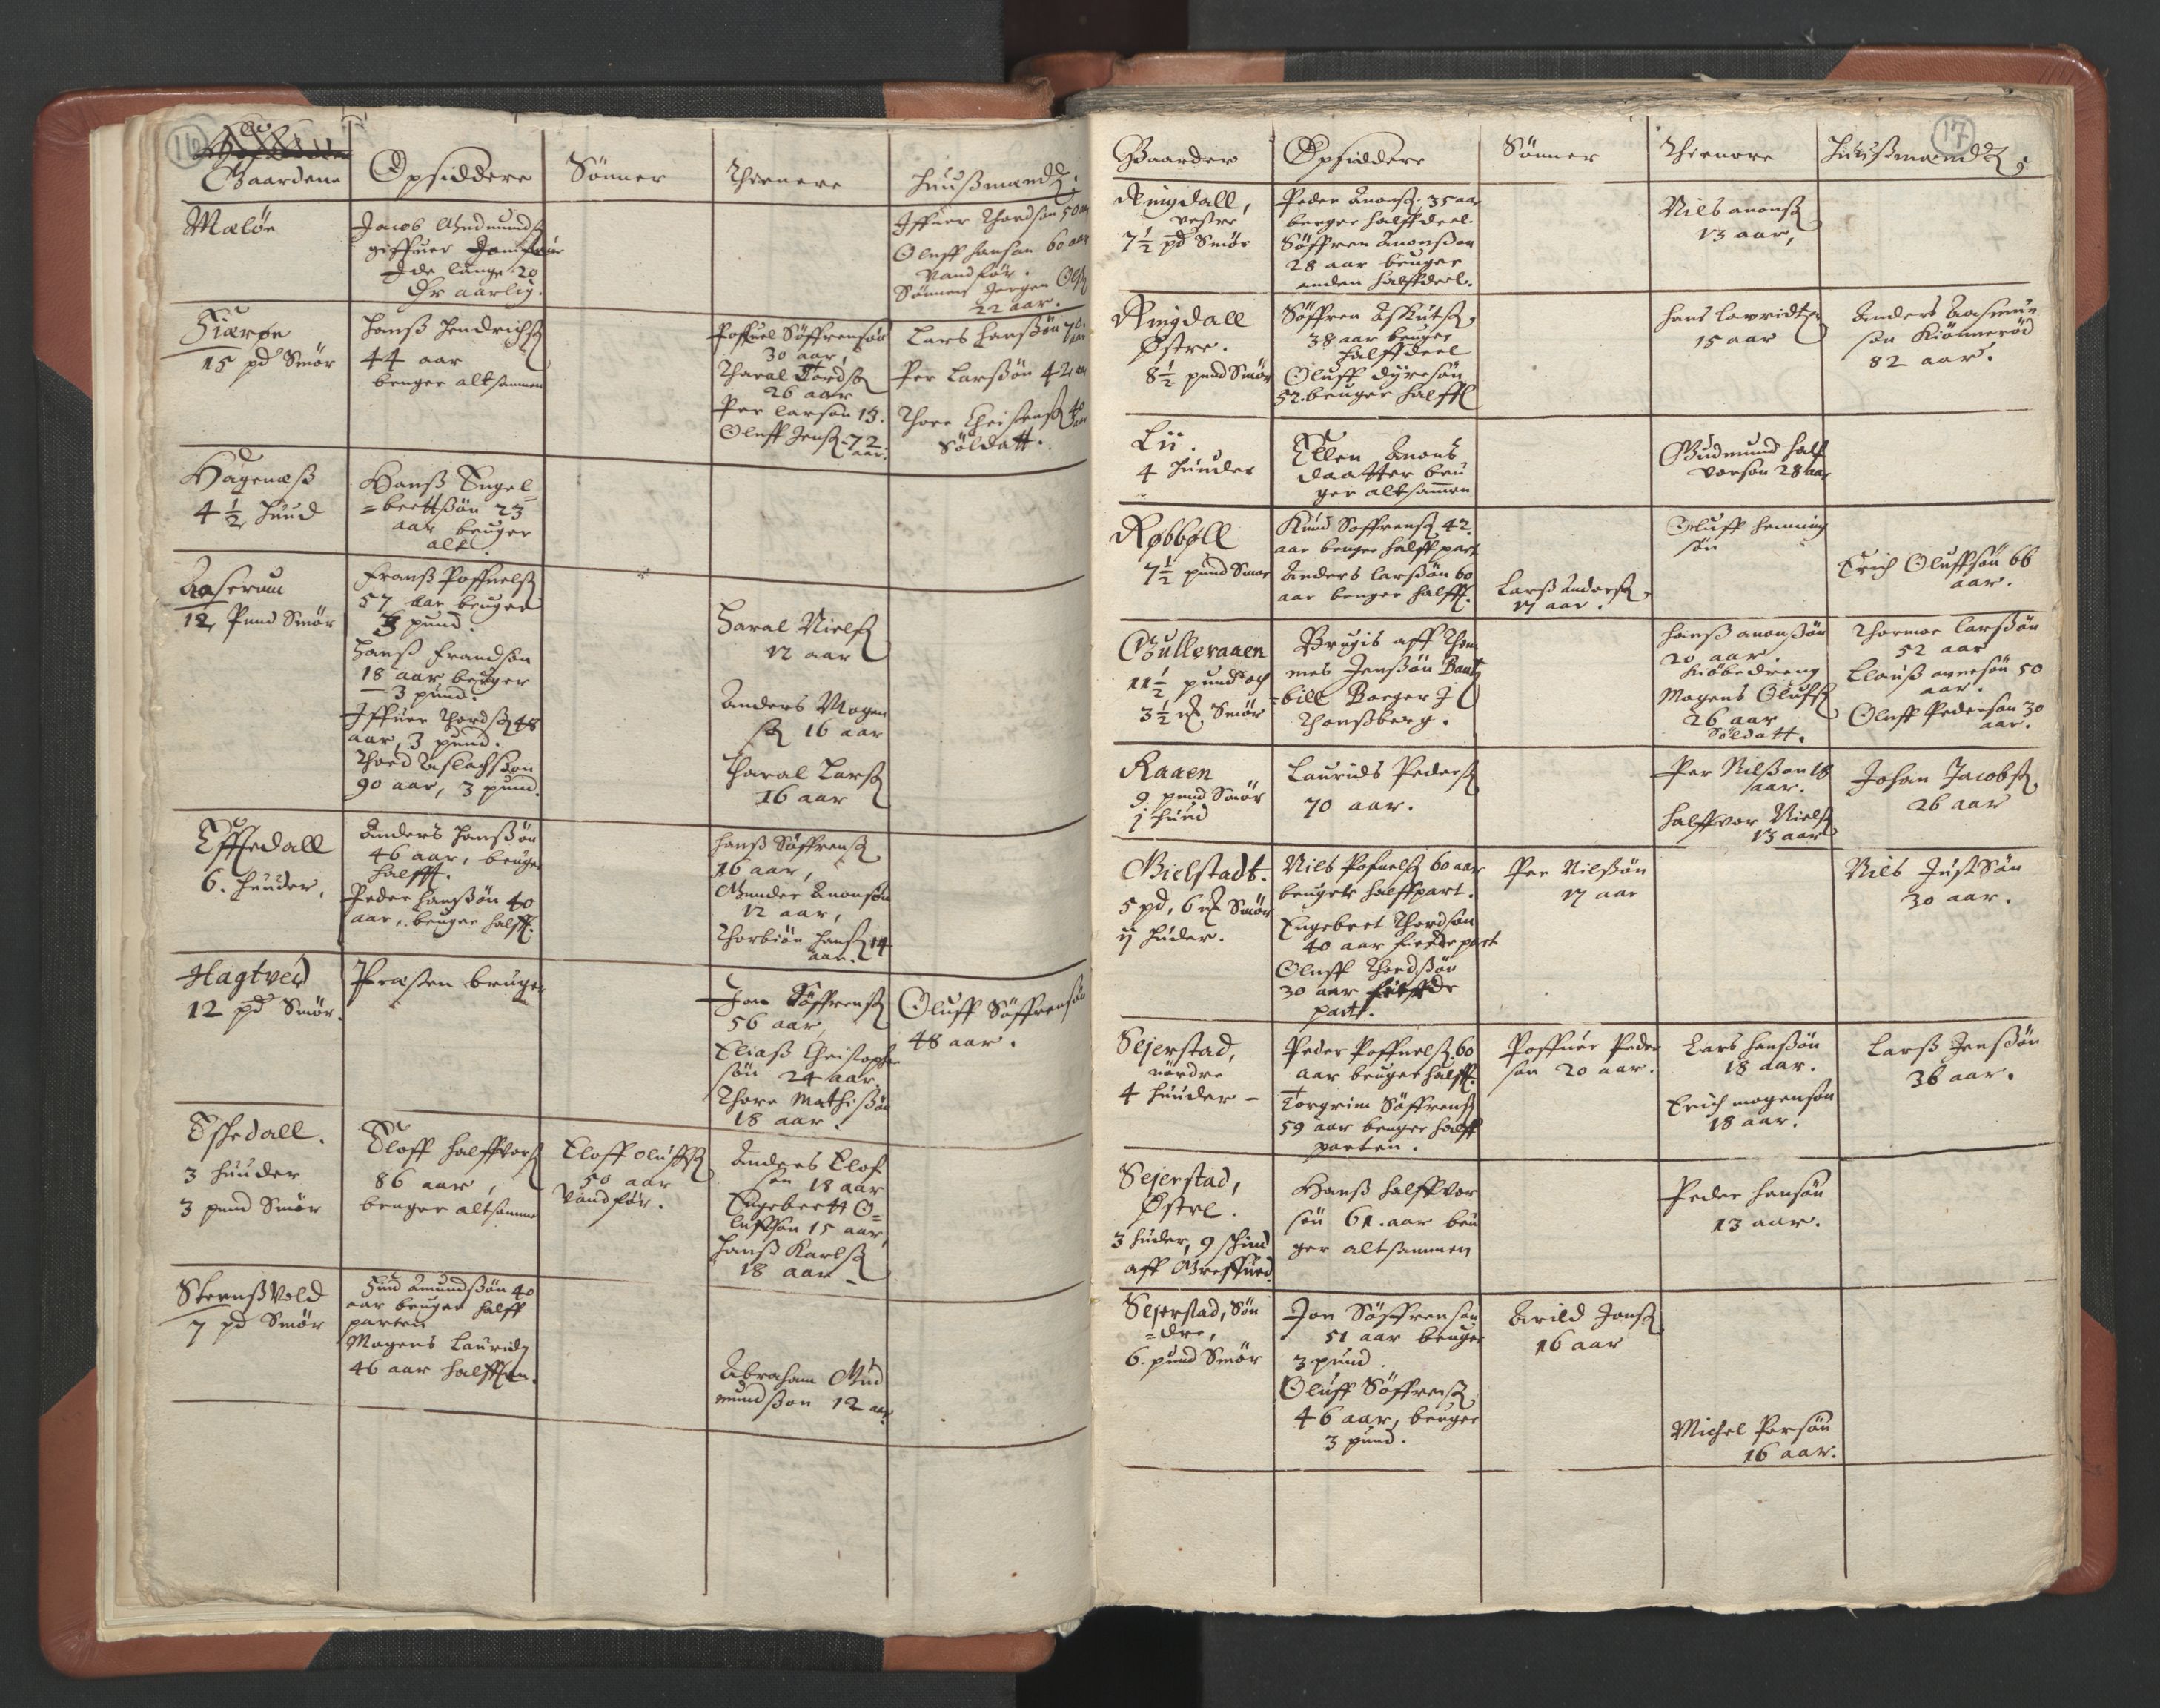 16
Gaardene
Opsiddere
Sönner
Thienere
Huußmænd
Maløe
Jacob Gudmunds
giffuer Jomfrue
Ide Lange 20
Dr aarlig.
Iffuer Thordsøn 50 aar
Oluff Hansøn 60 aar
Vandför.
Sönnen Jorgen Ols
22 aar.
Hiærøe
15 pd Smör
Hanß Hendrichs
44 aar
bruger altsammen
Poffuel Söffrensön
30 aar,
Haral Tords
26 aar
Per Larsøn 13.
Oluff Jens. 72
aar.
Lars Hanßön 70.
aar
Per Larßön 42 aar
Thore Christens 40
aar
Söldatt.
Hågenæß
4 1/2 huud
Hanß Engel
=brettßön 23
aar bruger
alt.
Aaserum
12 Pund Smör
Franß Poffuels
57 aar bruger
3 pund.
Hanß Frandsøn
18 aar, bruger
3 pund.
Iffuer Thords 48
aar, 3 pund.
Thord Aslachßøn
90 aar, 3 pund.
Haral Niels
12 aar
Anders Mogen
s 16 aar
Haral Lars
16 aar
Efftedall
6. huuder,
Anders Hanßön
46 aar, bruger
halff.
Peder Hanßön 40
aar, bruger halff.
Hanß Söffrens
16 aar,
Gunder Anonsøn
12 aar,
Thorbiön Hans 14
aar.
Hagtved
12 pd Smör.
Præsten bruger
Jon Söffrens
56 aar,
Eliaß Christopher
sön 24 aar.
Thore Mathißøn
18 aar.
Oluff Söffrensön
48 aar.
Eskedall.
3 huuder
3 pund Smör
Eloff Halffvors
86 aar,
bruger altsamme
Eloff Oluffs
50 aar
Vandför.
Anders Elof
søn 18 aar
Engebrett O=
luffsøn 15 aar,
Hanß Karls
18 aar
SternßVold
7 pd Smör
Find Amundßön 40
aar bruger halff
parten
Mogens Laurids
46 aar halfften.
Abraham Gud
mundßøn 12 aar
17
Gaarder
Opsiddere
Sönner
Thienere
Huußmænd
Ringdall,
vestre
7 1/2 pd Smör
Peder Anons. 35 aar
bruger halffdeel.
Söffren Anonßøn
28 aar bruger
anden halffdeel.
Nils Anons
13 aar,
Ringdall
Østre.
8 1/2 pund Smör
Söffren Aslluts,
38 aar bruger
halffdeel
Oluff Dyresön
52. bruger halff
Hans Lavridts
15 aar
Anders Aasmun
søn Kiönnerød
82 aar.
Lii.
4 huuder
Ellen Anons
daatter bru
ger altsammen
Gudmund Half
vorsøn 28 aar
Røbbøll
7 1/2 pund Smør
Knud Söffrens 42.
aar bruger halffpart
Anders Larßön 60
aar bruger halff.
Larß Anders,
17 aar.
Oluff Henning
sön
Erich Oluffsön 66
aar.
Gulleraaen
11 1/2 pund och
3 1/2 Smör
Brugis aff Thom
mes Jenßön Bautz
=bill Borger I
Thonßberg.
Hanß Anonßön
20 aar.
Kiöbedreng
Mogens Olufs
26 aar
Söldatt.
Thormor Larßön
52 aar
Clauß Arnesön 50
aar.
Oluff Pedersøn 30
aar.
Raaen
9 pund Smör
1 huud
Laurids Peders
70 aar.
Per Nilßøn 18
aar.
Halffvor Niels
13 aar
Johan Jacobs,
26 aar
Gielstadt.
5 pd, 6 Smör
ij huder.
Nils Pofuels 60 aar
brugger halffpart.
Engebret Thordsøn
40 aar fierdepart
Oluff Thordßøn
30 aar fierde
part.
Per Nilßön
17 aar
Nils JustSön
30 aar.
Sejerstad,
nördre
4 huuder
Peder Poffuels. 60
aar bruger halff.
Torgrim Söffrens
59 aar bruger halff
parten.
Poffuer Peder
søn 20 aar.
Lars Hanßön
18 aar.
Erich Mogensøn
18 aar.
Larß Jenßön
36 aar.
Sejerstad,
Østre.
3 huder, 9 schind
aff
Hanß Halffvor
sön 61. aar bru
ger altsammen
Peder Hansön
13 aar.
Sejerstad, Søn
=dre,
6. pund Smör
Jon Söffrensøn
51 aar bruger
3 pund.
Oluff Söffrens
46 aar, bruger
3 pund.
Arild Jons
16 aar
Michel Persön
16 aar.